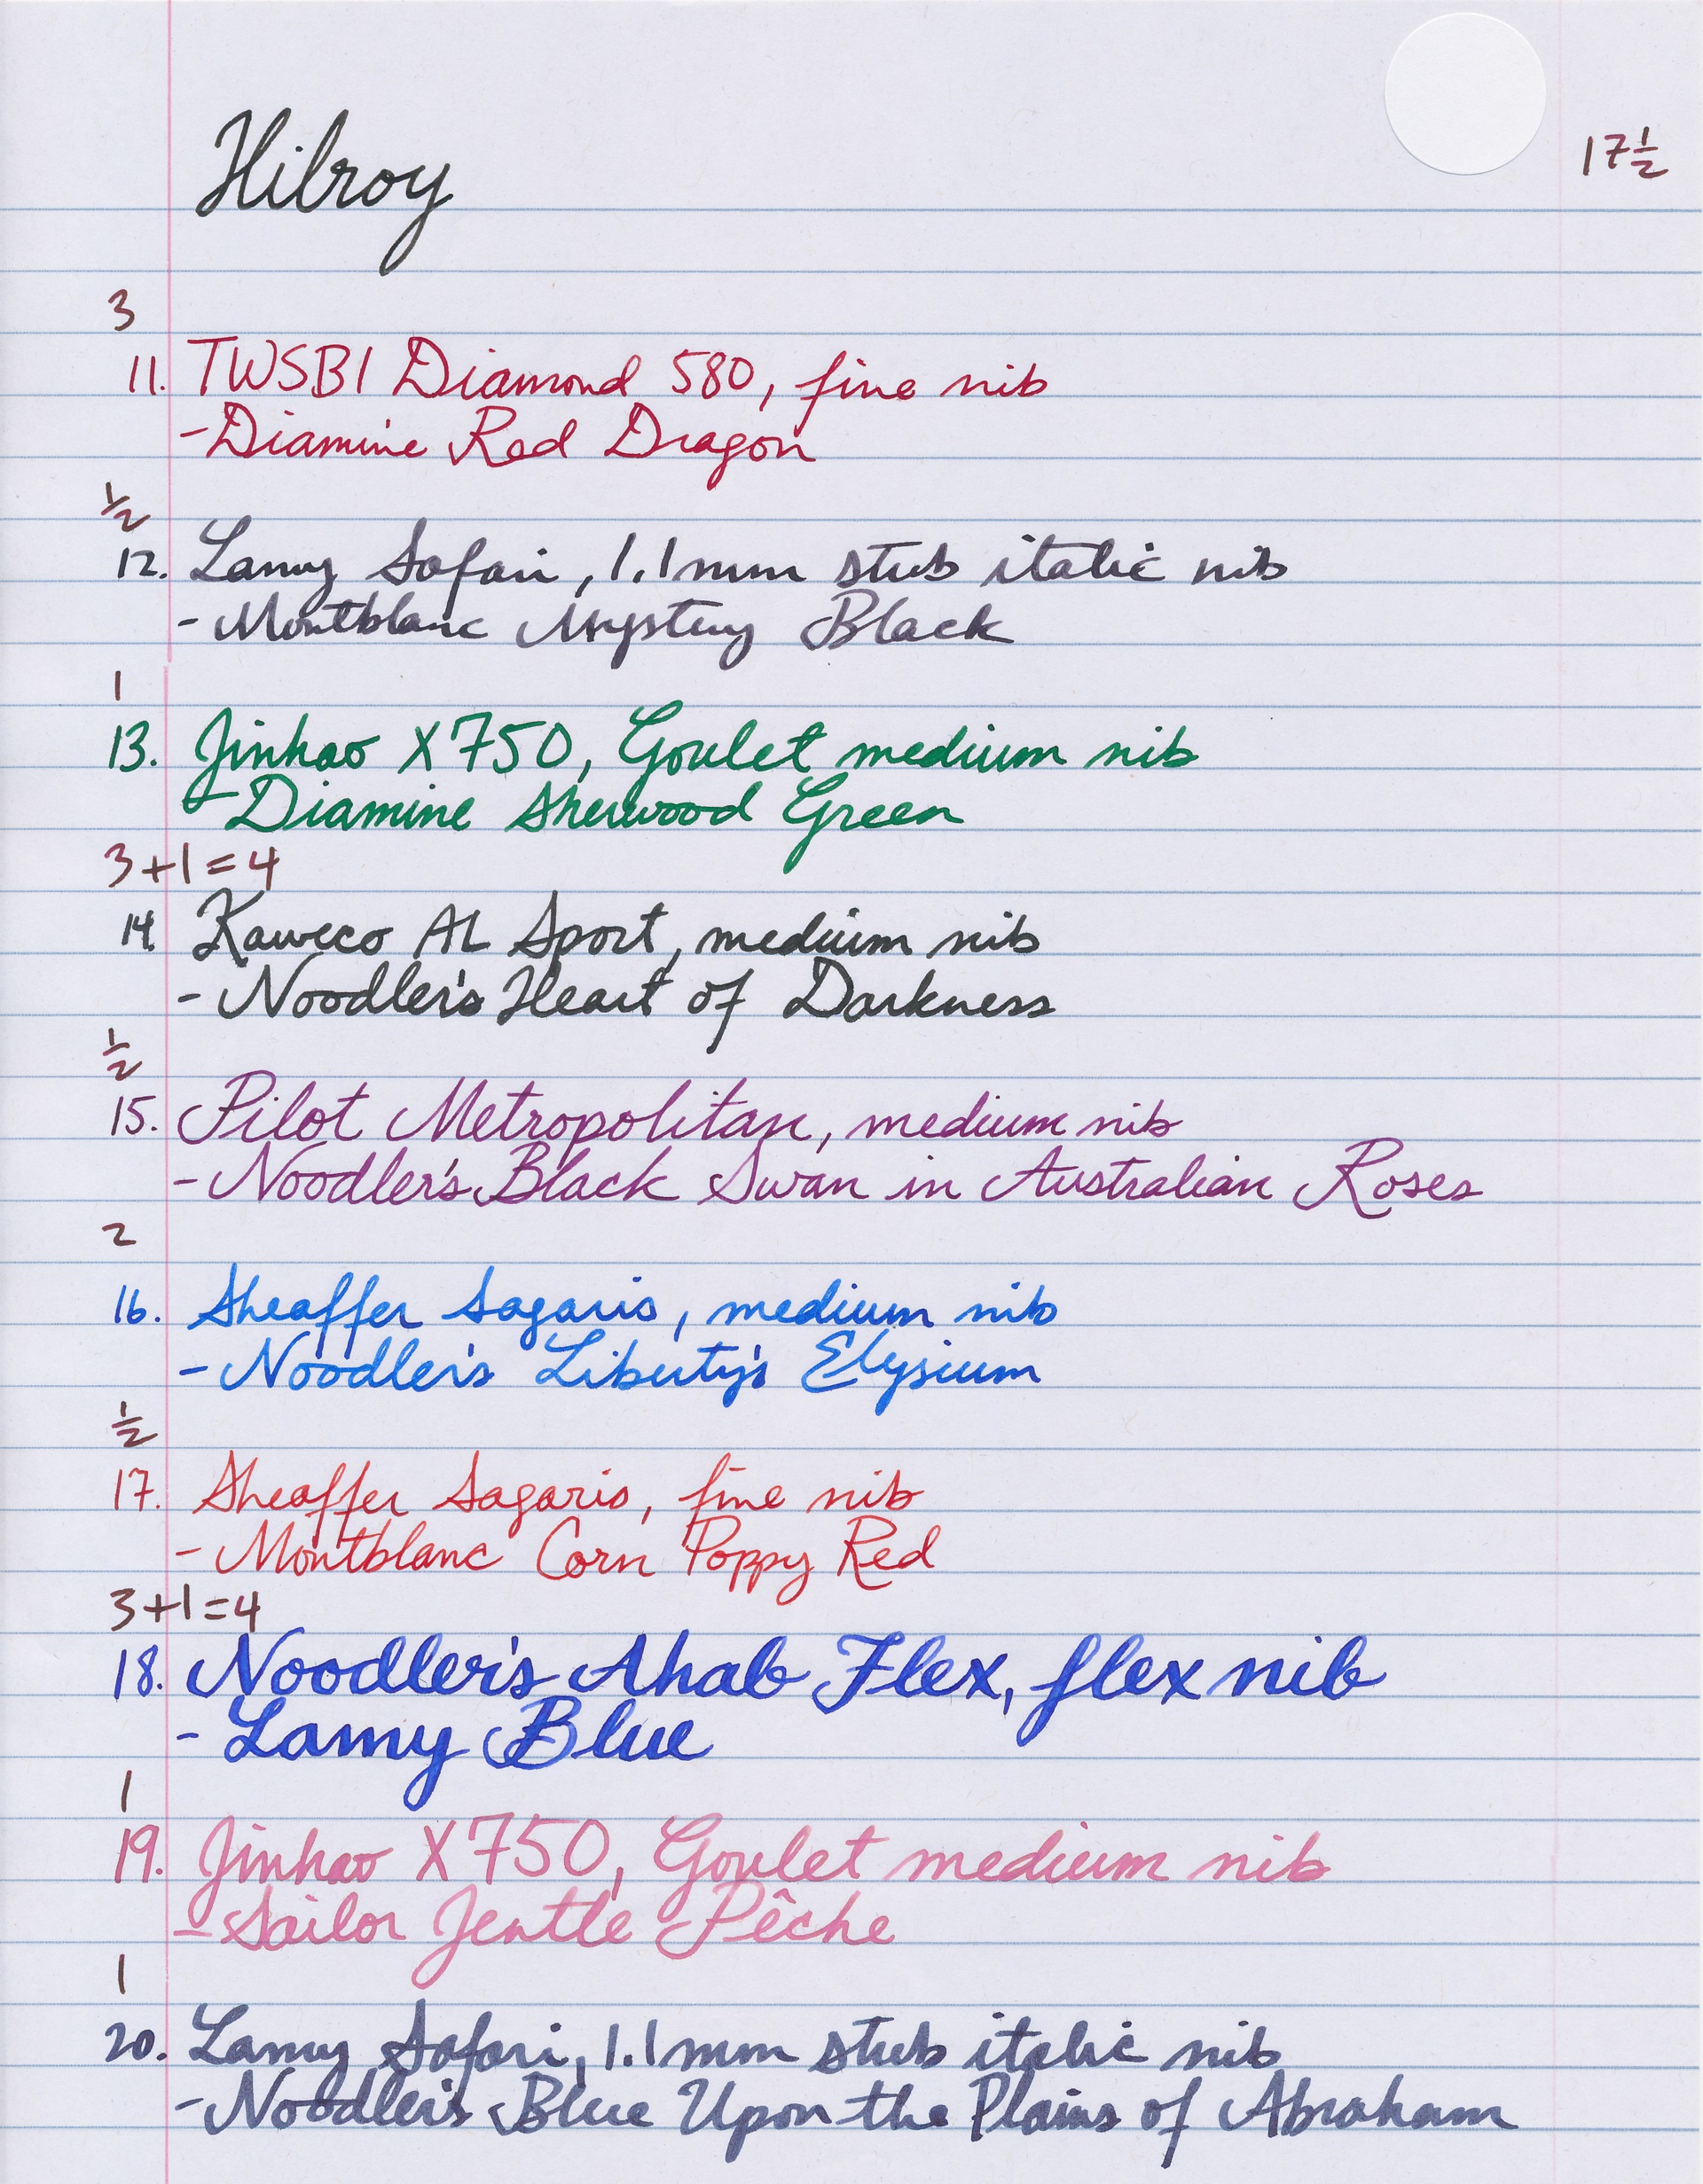 Hilroy
17 1/2
3
11. TWSBI Diamond 580, fine nib
- Diamine Red Dragon
1/2
12. Lamy Safari, 1.1mm stub italic nib
- Montblanc Mystery Black
1
13. Jinhao X750, Goulet medium nib
- Diamine Sherwood Green
3+1=4
14. Kaweco AL Sport, medium nib
- Noodler's Heart of Darkness
1/2
15. Pilot Metropolitan, medium nib
- Noodler's Black Swan in Australian Roses
2
16. Sheaffer Sagaris, medium nib
- Noodler's Liberty's Elysium
1/2
17. Sheaffer Sagaris, fine nib
- Montblanc Corn Poppy Red
3+1=4
18. Noodler's Ahab Flex, flex nib
- Lamy Blue
1
19. Jinhao X750, Goulet medium nib
- Sailor Jentle Pêche
1
20. Lamy Safari, 1.1mm stub italic nib
- Noodler's Blue Upon the Plains of Abraham